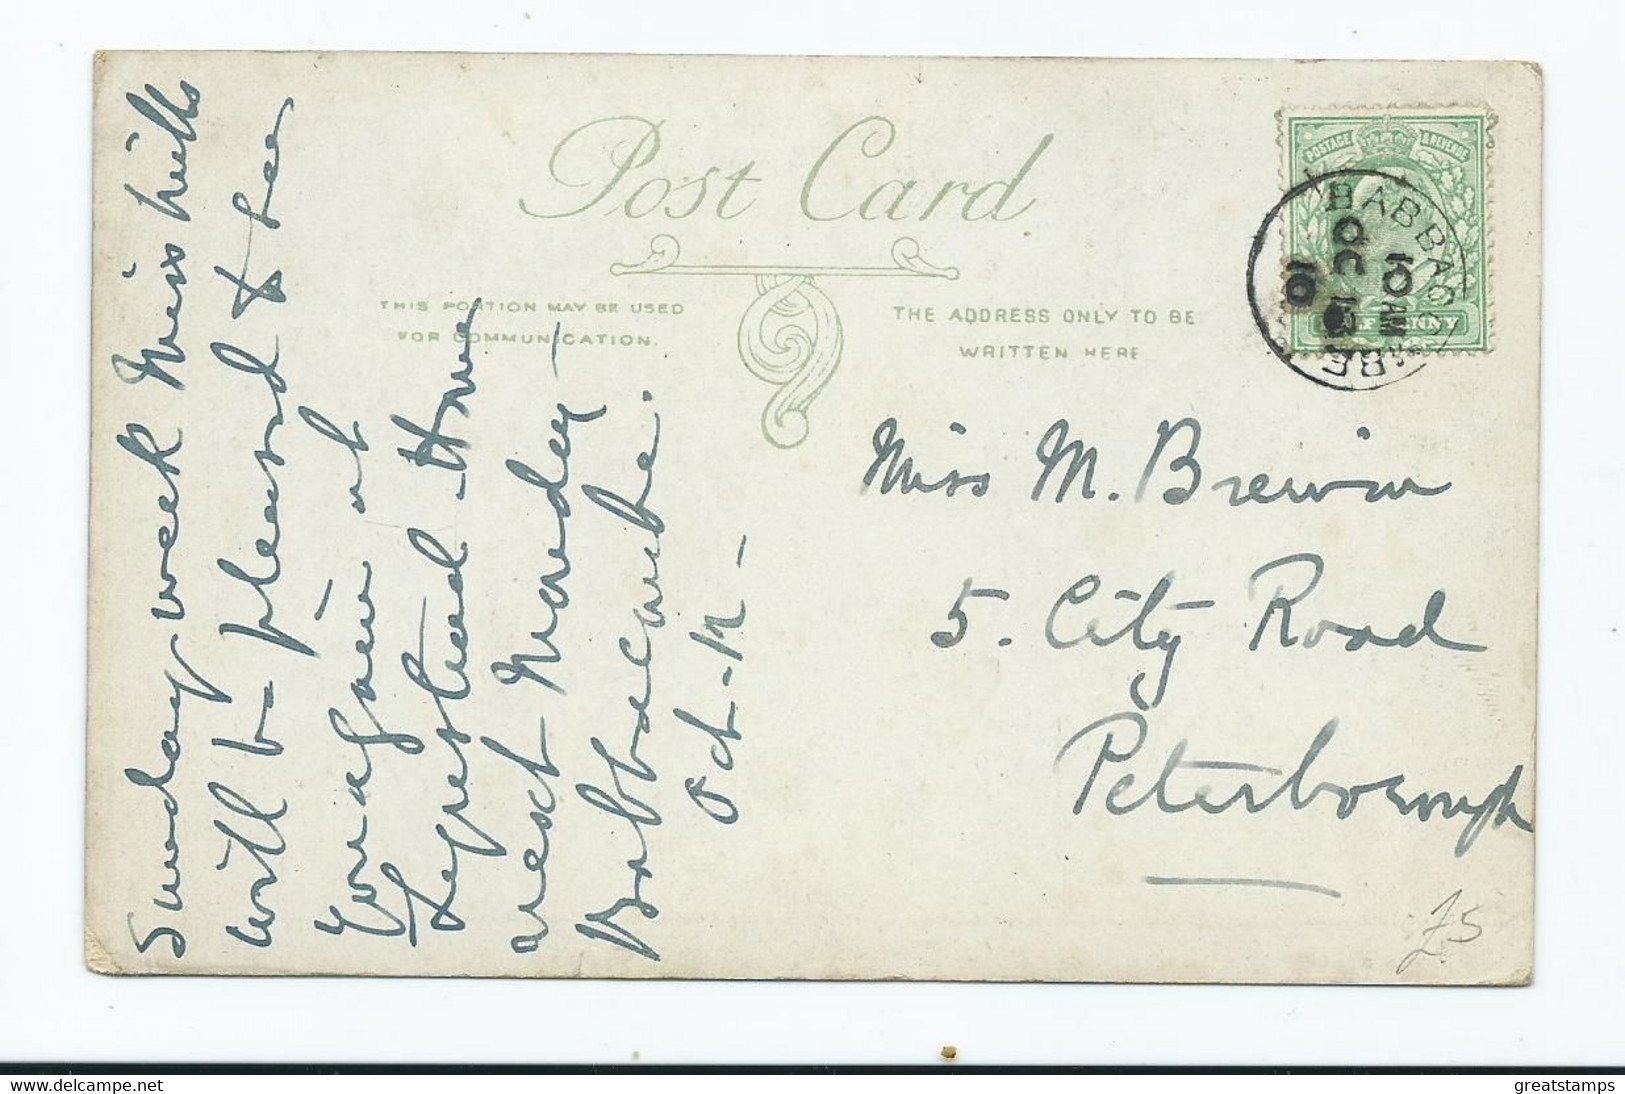 Post Card
THIS PORTION MAY BE USED
FOR COMMUNICATION.
THE ADDRESS ONLY TO BE
WRITTEN HERE
POSTAGE & REVENUE
HALFPENNY
BABBACOMBE
10 AM
OC 12
10
Sunday week Miss Mills
will be pleased to see
you again at
Lypstead House
next Monday —
Babbacombe.
Oct. 12 —
Miss M. Brewin
5. City Road
Peterborough
£5
greatstamps